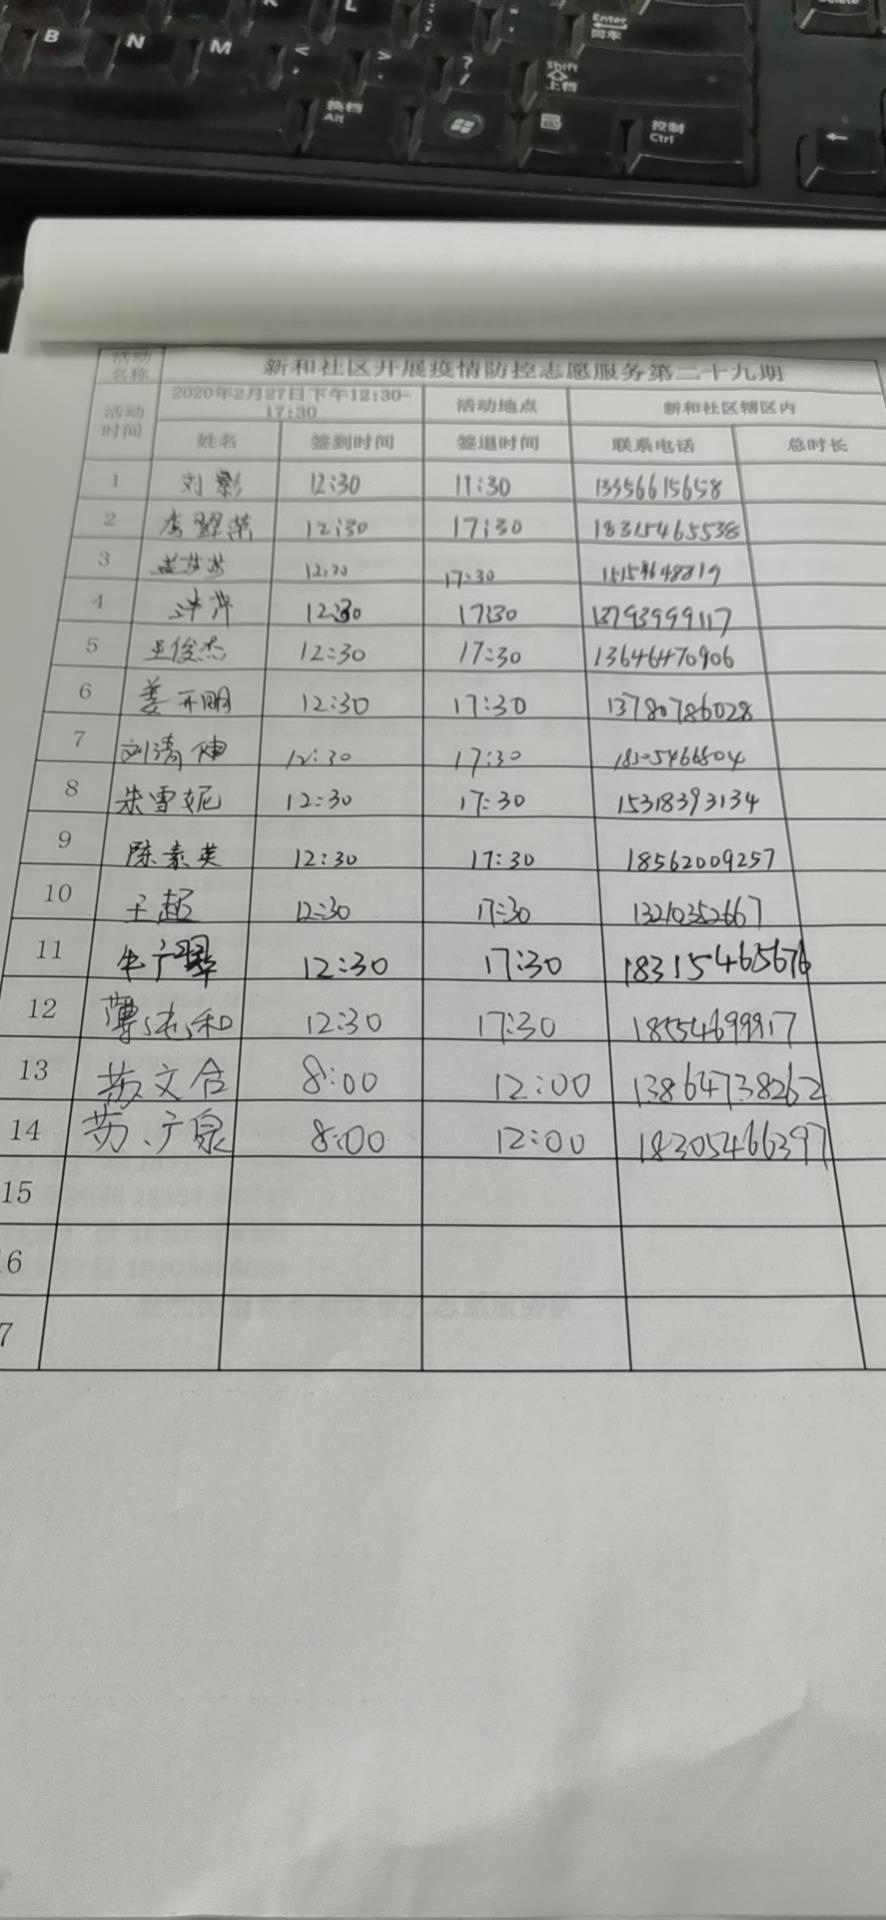 K L
B N M < , > . ? /
Enter 回车
Shift 上档
换档 Alt
控制 Ctrl
←
活动名称 新和社区开展疫情防控志愿服务第二十九期
活动时间 2020年2月27日下午12:30-17:30 活动地点 新和社区辖区内
姓名 签到时间 签退时间 联系电话 总时长
1 刘影 12:30 17:30 13356615658
2 李翠荣 12:30 17:30 18315465538
3 12:30 17:30 15154648819
4 萍 12:30 17:30 13793999117
5 王俊杰 12:30 17:30 13646470906
6 姜开明 12:30 17:30 13780786028
7 刘清坤 12:30 17:30 18305466804
8 朱雪妮 12:30 17:30 15318393134
9 陈素英 12:30 17:30 18562009257
10 王超 12:30 17:30 13210352667
11 牛广翠 12:30 17:30 18315465676
12 薄纯和 12:30 17:30 18554699917
13 苏文合 8:00 12:00 13864738262
14 苏广泉 8:00 12:00 18305466397
15
6
7